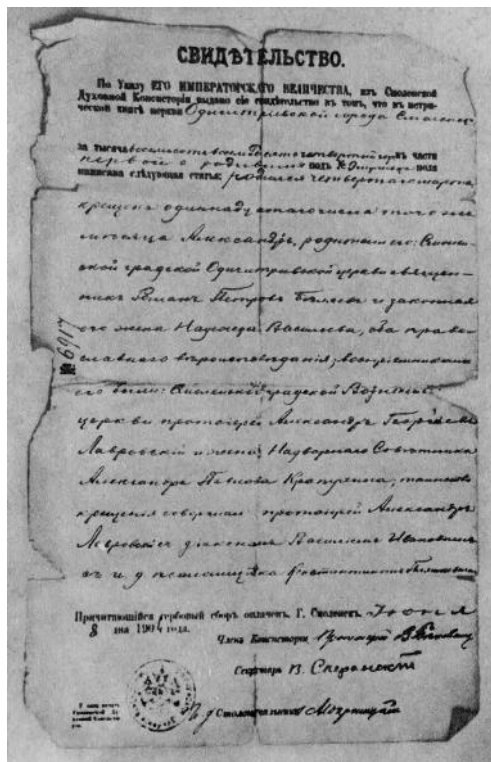 СВИДѢТЕЛЬСТВО.
По Указу ЕГО ИМПЕРАТОРСКАГО ВЕЛИЧЕСТВА, изъ Смоленской
Духовной Консисторіи выдано сіе свидѣтельство въ томъ, что въ метри-
ческой книгѣ церкви Одигитріевской города Смоленска
за тысяча восемьсотъ восемьдесятъ четвертый годъ въ части
первой о родившихся подъ № мужеска пола
написана слѣдующая статья: родился четвертаго марта,
крещенъ одиннадцатаго числа того же
мѣсяца Александръ, родители его: Смолен-
ской градской Одигитріевской церкви священ-
никъ Романъ Петровъ Бѣляевъ и законная
его жена Надежда Васильева, оба право-
славнаго вѣроисповѣданія; воспріемниками
его были: Смоленской градской
церкви протоіерей Александръ Георгіевъ
Лавровскій и жена Надворнаго Совѣтника
Александра Павлова таинство
крещенія совершалъ протоіерей Александръ
Лавровскій съ діакономъ Василіемъ
и. д. псаломщика Константиномъ
№ 6917
Причитающійся гербовый сборъ оплаченъ. Г. Смоленскъ. Іюня
8 дня 1904 года.
Членъ Консисторіи Протоіерей
Секретарь В. Сперанскій
И. д. Столоначальника